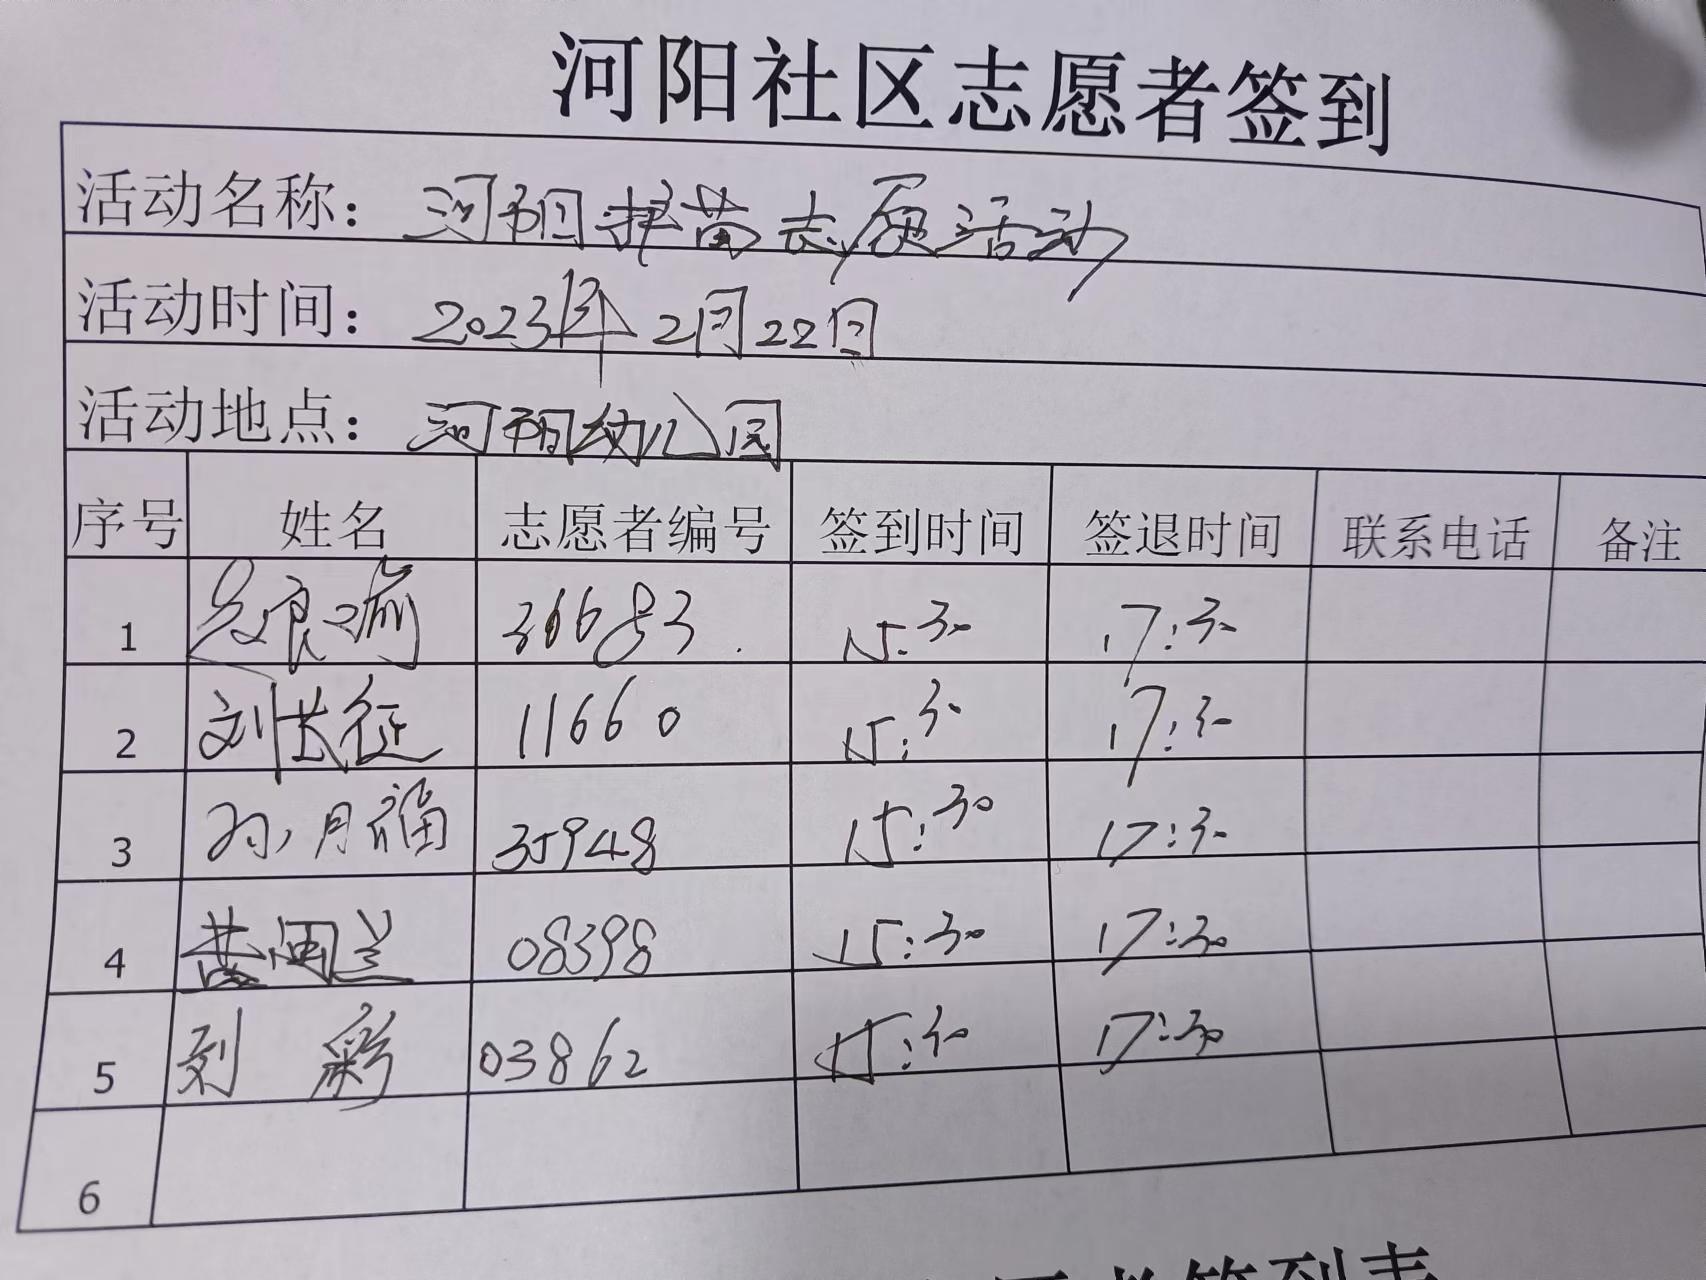 河阳社区志愿者签到
活动名称：河阳护苗志愿活动
活动时间：2023年2月22日
活动地点：河阳幼儿园
序号 姓名 志愿者编号 签到时间 签退时间 联系电话 备注
1 36683 15:30 17:30
2 刘长征 11660 15:30 17:30
3 孙月福 35948 15:30 17:30
4 黄闺兰 08398 15:30 17:30
5 刘彩 03862 15:30 17:30
6
者签到表